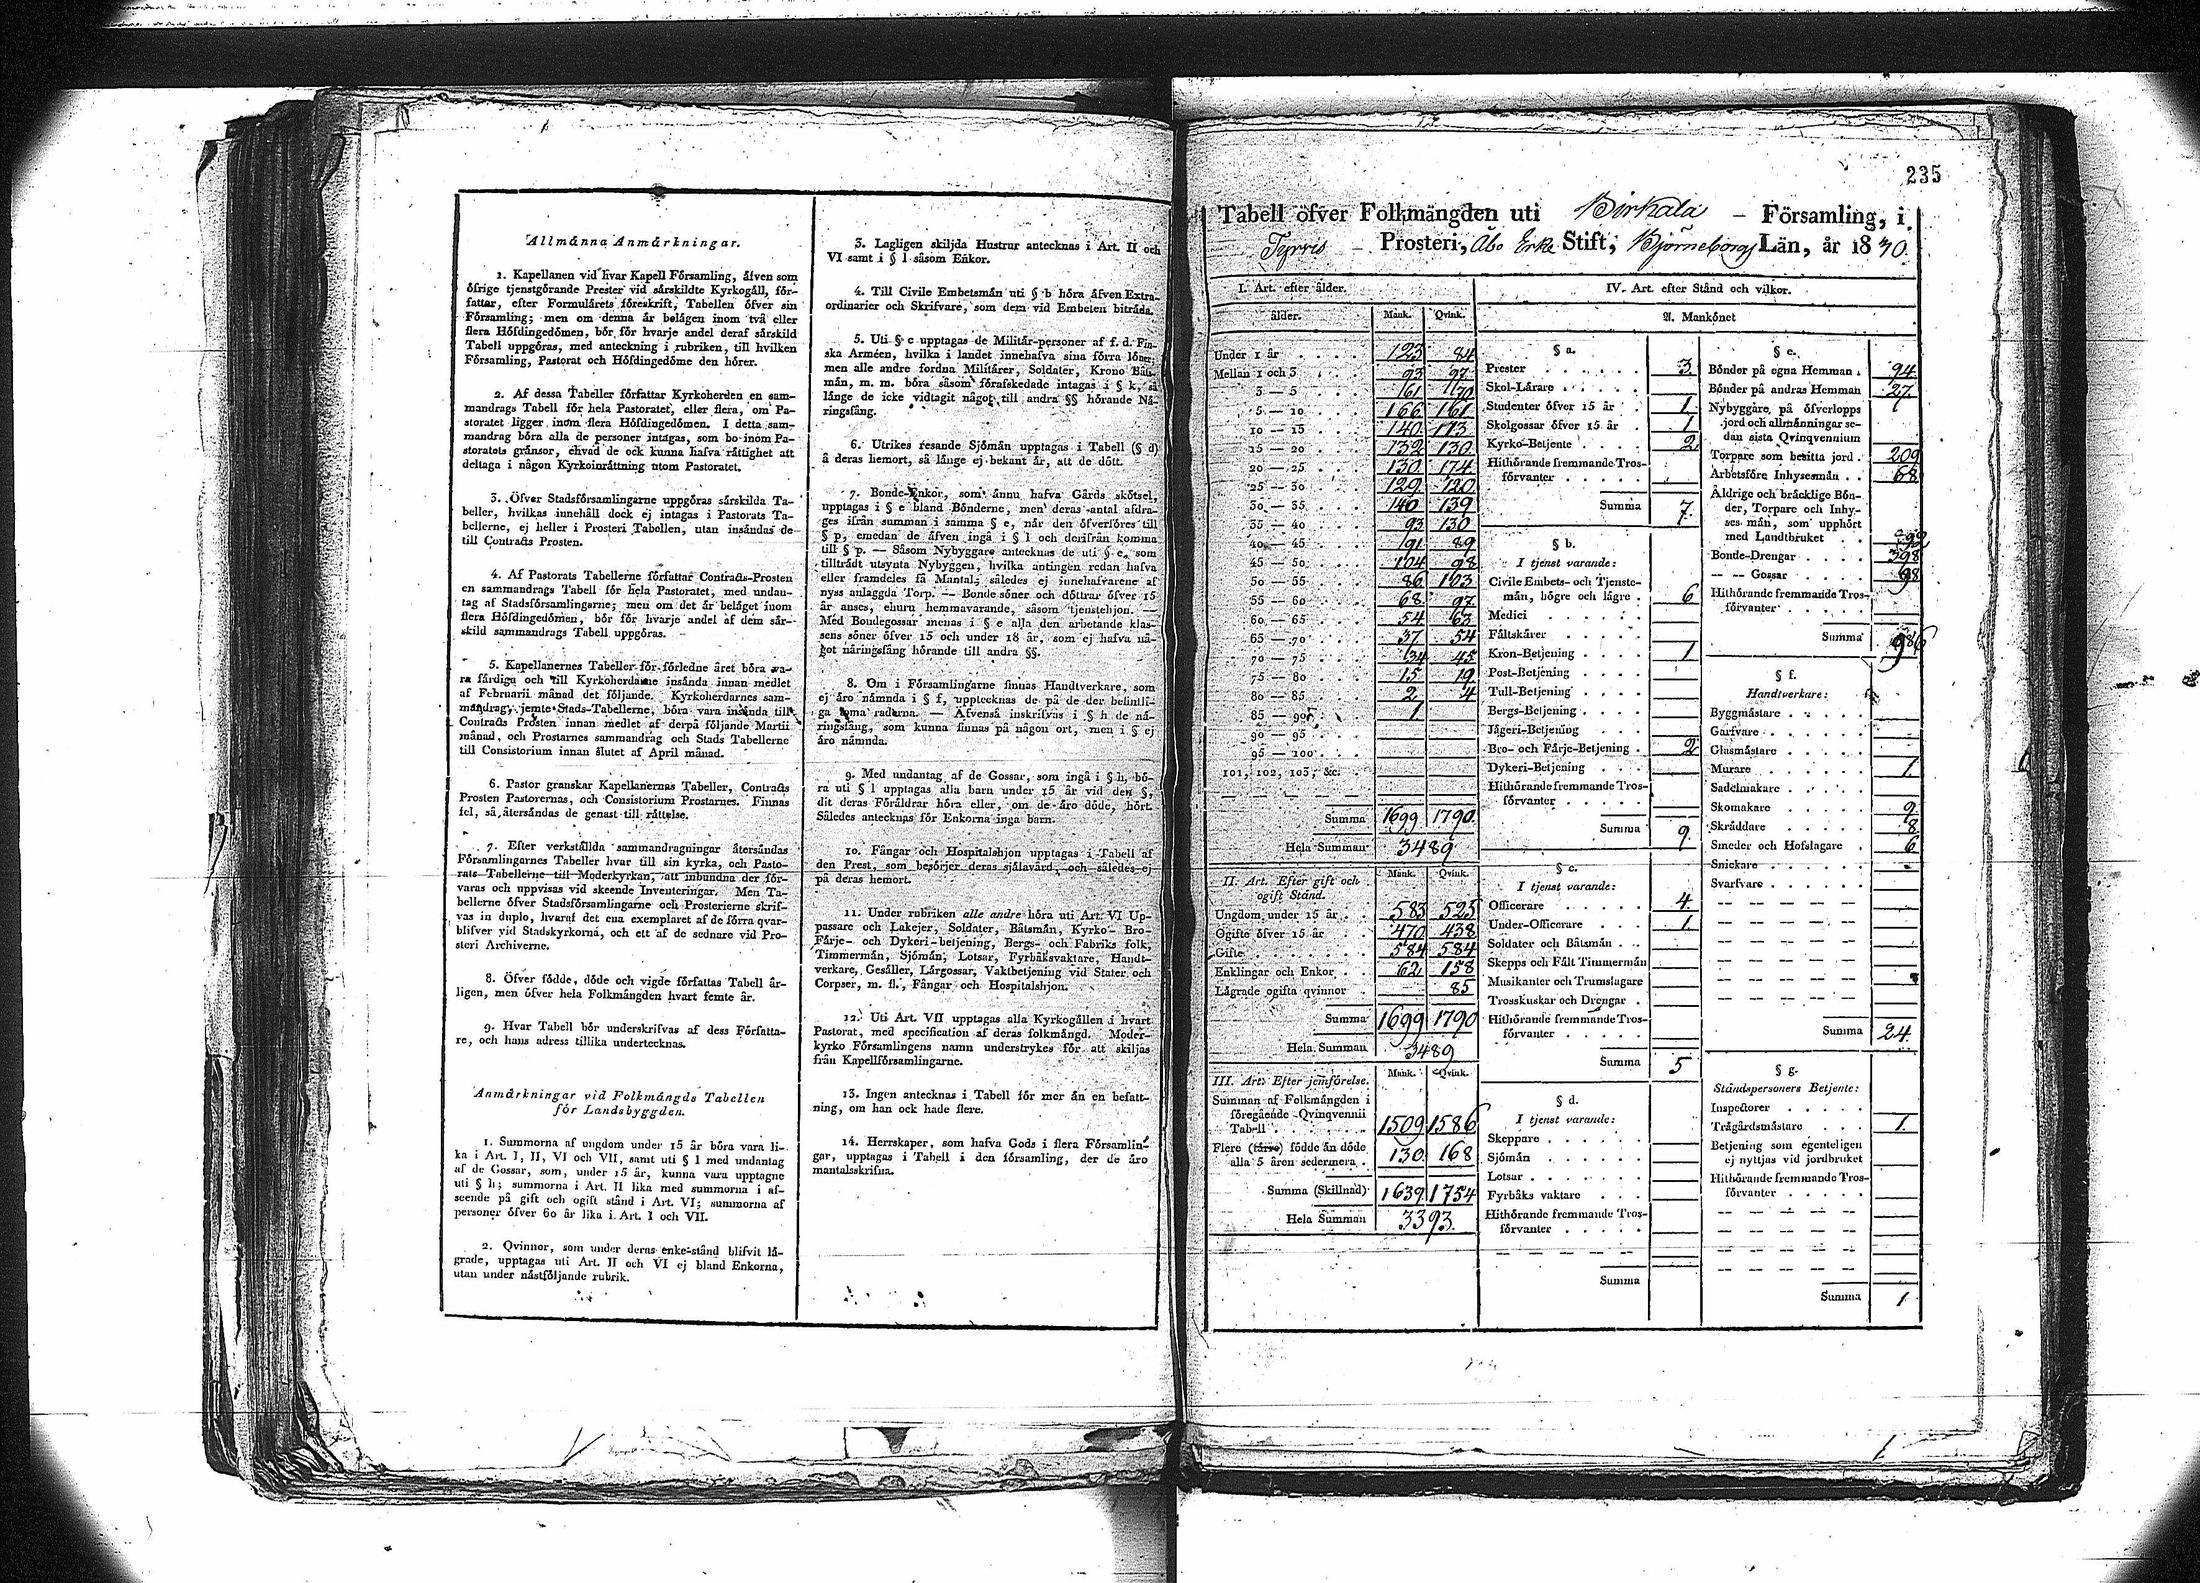 Allmänna Anmärkningar.
1. Kapellanen vid hvar Kapell Församling, äfven som
öfrige tjenstgörande Prester vid särskildte Kyrkogäll, för-
fattar, efter Formulärets föreskrift, Tabellen öfver sin
Församling; men om denna är belägen inom två eller
flera Höfdingedömen, bör för hvarje andel deraf särskild
Tabell uppgöras, med anteckning i rubriken, till hvilken
Församling, Pastorat och Höfdingedöme den hörer.
2. Af dessa Tabeller författar Kyrkoherden en sam-
mandrags Tabell för hela Pastoratet, eller flera, om Pa-
storatet ligger inom flera Höfdingedömen. I detta sam-
mandrag böra alla de personer intagas, som bo inom Pa-
storatets gränsor, ehvad de ock kunna hafva rättighet att
deltaga i någon Kyrkoinrättning utom Pastoratet.
3. Öfver Stadsförsamlingarne uppgöras särskilda Ta-
beller, hvilkas innehåll dock ej intagas i Pastorats Ta-
bellerne, ej heller i Prosteri Tabellen, utan insändas de
till Contracts Prosten.
4. Af Pastorats Tabellerne författar Contracts-Prosten
en sammandrags Tabell för hela Pastoratet, med undan-
tag af Stadsförsamlingarne; men om det är beläget inom
flera Höfdingedömen, bör för hvarje andel af dem sär-
skild sammandrags Tabell uppgöras.
5. Kapellanernes Tabeller för förledne året böra va-
ra färdiga och till Kyrkoherdarne insända innan medlet
af Februarii månad det följande. Kyrkoherdarnes sam-
mandrag, jemte Stads-Tabellerne, böra vara insända till
Contracts Prosten innan medlet af derpå följande Martii
månad, och Prostarnes sammandrag och Stads Tabellerne
till Consistorium innan slutet af April månad.
6. Pastor granskar Kapellanernas Tabeller, Contracts
Prosten Pastorernas, och Consistorium Prostarnes. Finnas
fel, så återsändas de genast till rättelse.
7. Efter verkställda sammandragningar återsändas
Församlingarnes Tabeller hvar till sin kyrka, och Pasto-
rats Tabellerne till Moderkyrkan, att inbundna der för-
varas och uppvisas vid skeende Inventeringar. Men Ta-
bellerne öfver Stadsförsamlingarne och Prosterierne skrif-
vas in duplo, hvaraf det ena exemplaret af de förra qvar-
blifver vid Stadskyrkorna, och ett af de sednare vid Pro-
steri Archiverne.
8. Öfver födde, döde och vigde författas Tabell år-
ligen, men öfver hela Folkmängden hvart femte år.
9. Hvar Tabell bör underskrifvas af dess Författa-
re, och hans adress tillika undertecknas.
Anmärkningar vid Folkmängds Tabellen
för Landsbyggden.
1. Summorna af ungdom under 15 år böra vara li-
ka i Art. I, II, VI och VII, samt uti § l med undantag
af de Gossar, som, under 15 år, kunna vara upptagne
uti § h; summorna i Art. II lika med summorna i af-
seende på gift och ogift stånd i Art. VI; summorna af
personer öfver 60 år lika i Art. I och VII.
2. Qvinnor, som under deras enke-stånd blifvit lä-
grade, upptagas uti Art. II och VI ej bland Enkorna,
utan under nästföljande rubrik.
3. Lagligen skiljda Hustrur antecknas i Art. II och
VI samt i § l såsom Enkor.
4. Till Civile Embetsmän uti § b höra äfven Extra-
ordinarier och Skrifvare, som dem vid Embeten biträda.
5. Uti § c upptagas de Militär-personer af f. d. Fin-
ska Arméen, hvilka i landet innehafva sina förra löner;
men alle andre fordna Militärer, Soldater, Krono Båts-
män, m. m. böra såsom förafskedade intagas i § k, så
länge de icke vidtagit något till andra §§ hörande Nä-
ringsfång.
6. Utrikes resande Sjömän upptagas i Tabell (§ d)
å deras hemort, så länge ej bekant är, att de dött.
7. Bonde-Enkor, som ännu hafva Gårds skötsel,
upptagas i § e bland Bönderne, men deras antal afdra-
ges ifrån summan i samma § e, när den öfverföres till
§ p, emedan de äfven ingå i § l och derifrån komma
till § p. — Såsom Nybyggare antecknas de uti § e, som
tillträdt utsynta Nybyggen, hvilka antingen redan hafva
eller framdeles få Mantal; således ej innehafvarene af
nyss anlaggda Torp. — Bonde söner och döttrar öfver 15
år anses, ehuru hemmavarande, såsom tjenstehjon. —
Med Bondegossar menas i § e alla den arbetande klas-
sens söner öfver 15 och under 18 år, som ej hafva nå-
got näringsfång hörande till andra §§.
8. Om i Församlingarne finnas Handtverkare, som
ej äro nämnda i § f, upptecknas de på de der befintli-
ga toma raderna. — Äfvenså inskrifvas i § h de nä-
ringsfång, som kunna finnas på någon ort, men i § ej
äro nämnda.
9. Med undantag af de Gossar, som ingå i § h, bö-
ra uti § l upptagas alla barn under 15 år vid den §,
dit deras Föräldrar höra eller, om de äro döde, hört.
Således antecknas för Enkorna inga barn.
10. Fångar och Hospitalshjon upptagas i Tabell af
den Prest, som besörjer deras själavård, och således ej
på deras hemort.
11. Under rubriken alle andre höra uti Art. VI Up-
passare och Lakejer, Soldater, Båtsmän, Kyrko- Bro-
Färje- och Dykeri-betjening, Bergs- och Fabriks folk,
Timmermän, Sjömän, Lotsar, Fyrbåksvaktare, Handt-
verkare, Gesäller, Lärgossar, Vaktbetjening vid Stater och
Corpser, m. fl., Fångar och Hospitalshjon.
12. Uti Art. VII upptagas alla Kyrkogällen i hvart
Pastorat, med specification af deras folkmängd. Moder-
kyrko Församlingens namn understrykes för att skiljas
från Kapellförsamlingarne.
13. Ingen antecknas i Tabell för mer än en befatt-
ning, om han ock hade flere.
14. Herrskaper, som hafva Gods i flera Församlin-
gar, upptagas i Tabell i den församling, der de äro
mantalsskrifna.
235
Tabell öfver Folkmängden uti Birkala – Församling, i
Tyrvis – Prosteri, Åbo Erke Stift, Björneborgs Län, år 1830.
I. Art. efter ålder.
ålder. Mank. Qvink.
Under 1 år 123 84
Mellan 1 och 3 93 97
3 — 5 61 70
5 — 10 166 161
10 — 15 140 113
15 — 20 132 130
20 — 25 130 174
25 — 30 129 120
30 — 35 140 139
35 — 40 93 130
40 — 45 91 89
45 — 50 104 98
50 — 55 86 103
55 — 60 68 97
60 — 65 54 63
65 — 70 37 54
70 — 75 34 45
75 — 80 15 19
80 — 85 2 4
85 — 90 1
90 — 95
95 — 100
101, 102, 103, &c.
Summa 1699 1790
Hela Summan 3489
II. Art. Efter gift och
ogift Stånd. Mank. Qvink.
Ungdom under 15 år 583 525
Ogifte öfver 15 år 470 438
Gifte 584 584
Enklingar och Enkor 62 158
Lägrade ogifta qvinnor 85
Summa 1699 1790
Hela Summan 3489
III. Art. Efter jemförelse. Mank. Qvink.
Summan af Folkmängden i
föregående Qvinqvennii
Tabell 1509 1586
Flere (färre) födde än döde
alla 5 åren sedermera 130 168
Summa (Skillnad) 1639 1754
Hela Summan 3393.
IV. Art. efter Stånd och vilkor.
A. Mankönet
§ a.
Prester 3
Skol-Lärare
Studenter öfver 15 år 1
Skolgossar öfver 15 år 1
Kyrko-Betjente 2
Hithörande fremmande Tros-
förvanter
Summa 7
§ b.
I tjenst varande:
Civile Embets- och Tjenste-
män, högre och lägre 6
Medici
Fältskärer
Kron-Betjening 1
Post-Betjening
Tull-Betjening
Bergs-Betjening
Jägeri-Betjening
Bro- och Färje-Betjening 2
Dykeri-Betjening
Hithörande fremmande Tros-
förvanter
Summa 9
§ c.
I tjenst varande:
Officerare 4
Under-Officerare 1
Soldater och Båtsmän
Skepps och Fält Timmermän
Musikanter och Trumslagare
Trosskuskar och Drengar
Hithörande fremmande Tros-
förvanter
Summa 5
§ d.
I tjenst varande:
Skeppare
Sjömän
Lotsar
Fyrbåks vaktare
Hithörande fremmande Tros-
förvanter
Summa
§ e.
Bönder på egna Hemman 94
Bönder på andras Hemman 27
Nybyggare, på öfverlopps
jord och allmänningar se-
dan sista Qvinqvennium
Torpare som besitta jord 209
Arbetsföre Inhysesmän 68
Äldrige och bräcklige Bön-
der, Torpare och Inhy-
ses män, som upphört
med Landtbruket
Bonde-Drengar 398
— — Gossar 98
Hithörande fremmande Tros-
förvanter
Summa 986
§ f.
Handtverkare:
Byggmästare
Garfvare
Glasmästare
Murare 1
Sadelmakare
Skomakare 9
Skräddare 8
Smeder och Hofslagare 6
Snickare
Svarfvare
Summa 24
§ g.
Ståndspersoners Betjente:
Inspectorer
Trågårdsmästare 1
Betjening som egenteligen
ej nyttjas vid jordbruket
Hithörande fremmande Tros-
förvanter
Summa 1